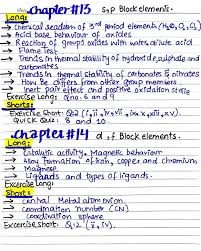 chapter #13 s,p Block elements.
Long:
→ Chemical reaction of 3rd period elements (H₂O, O₂, Cl₂)
→ Acid base behaviour of oxides
→ Reaction of group 1 oxides with water, dilute acid
→ Flame Test
→ Trends in thermal stability of hydroxide, sulphate and carbonates
→ Trends in thermal stability of carbonates & nitrates
→ How Be differs from other group members
→ inert pair effect and positive oxidation state
Exercise Long: Q no: 6 and 9
Shorts:
Exercise Short: Q2 (
Quick Quiz: 8 and 10.
chapter #14 d, f Block elements.
Long:
→ Catalytic activity, Magnetic behaviour
→ Alloy formation of Iron, copper and chromium,
Magnese
→ Ligands and types of ligands.
Exercise Long:
Shorts:
→ central Metal atom or ion
→ coordination number (CN)
→ coordination sphere
Exercise short: Q:2